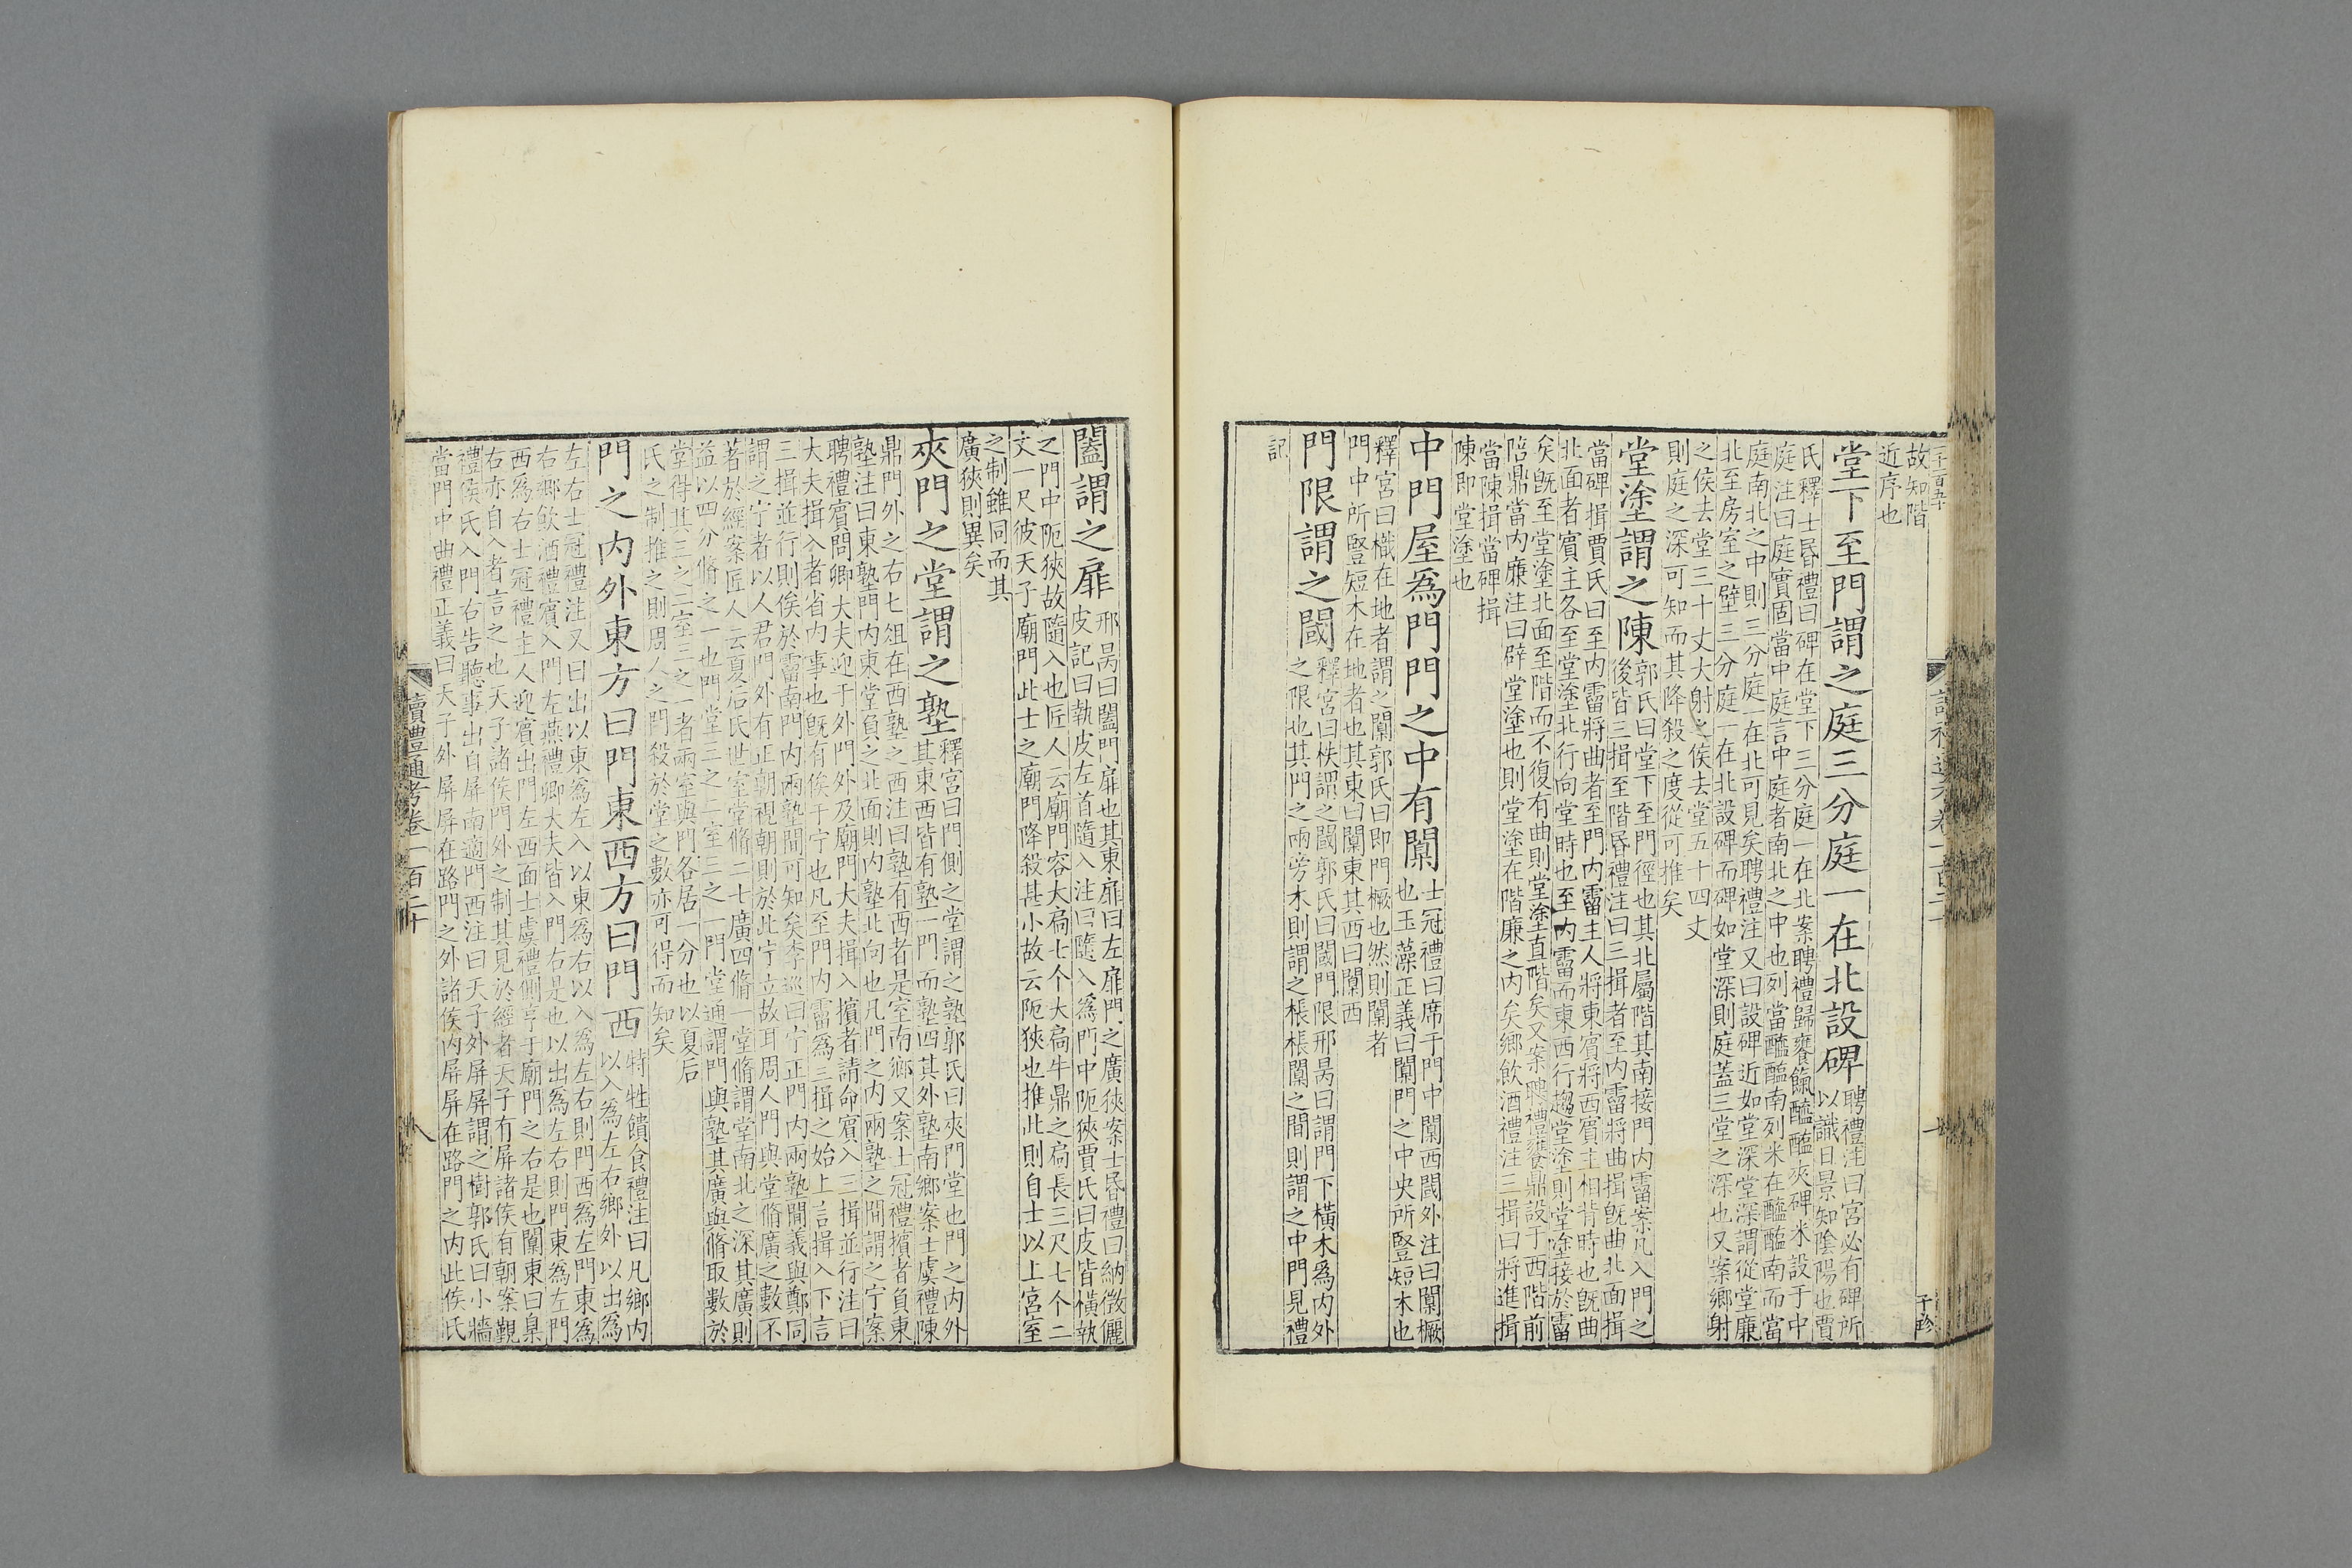 故知階
近序也
堂下至門謂之庭三分庭一在北設碑
聘禮注曰宮必有碑所
以識日景知陰陽也賈
氏釋士昏禮曰碑在堂下三分庭一在北案聘禮歸饔餼醯醢夾碑米設于中
庭注曰庭實固當中庭言中庭者南北之中也列當醯醢南列米在醯醢南而當
庭南北之中則三分庭一在北可見矣聘禮注又曰設碑近如堂深堂深謂從堂廉
北至房室之壁三分庭一在北設碑而碑如堂深則庭蓋三堂之深也又案鄉射
之侯去堂三十丈大射之侯去堂五十四丈
則庭之深可知而其降殺之度從可推矣
堂塗謂之陳
郭氏曰堂下至門徑也其北屬階其南接門內霤案凡入門之
後皆三揖至階昏禮注曰三揖者至內霤將曲揖既曲北面揖
當碑揖賈氏曰至內霤將曲者至門內霤主人將東賓將西賓主相背時也既曲
北面者賓主各至堂塗北行向堂時也至內霤而東西行趨堂塗則堂塗接於霤
矣既至堂塗北面至階而不復有曲則堂塗直階矣又案聘禮饔鼎設于西階前
陪鼎當內廉注曰辟堂塗也則堂塗在階廉之內矣鄉飲酒禮注三揖曰將進揖
當陳揖當碑揖
陳即堂塗也
中門屋為門門之中有闑
士冠禮曰席于門中闑西閾外注曰闑橛
也玉藻正義曰闑門之中央所豎短木也
釋宮曰橛在地者謂之闑郭氏曰即門橛也然則闑者
門中所豎短木在地者也其東曰闑東其西曰闑西
門限謂之閾
釋宮曰柣謂之閾郭氏曰閾門限邢昺曰謂門下橫木為內外
之限也其門之兩旁木則謂之棖棖闑之間則謂之中門見禮
記
闔謂之扉
邢昺曰闔門扉也其東扉曰左扉門之廣狹案士昏禮曰納徵儷
皮記曰執皮左首隨入注曰隨入為門中阨狹賈氏曰皮皆橫執
之門中阨狹故隨入也匠人云廟門容大扃七个大扃牛鼎之扃長三尺七个二
丈一尺彼天子廟門此士之廟門降殺甚小故云阨狹也推此則自士以上宮室
之制雖同而其
廣狹則異矣
夾門之堂謂之塾
釋宮曰門側之堂謂之塾郭氏曰夾門堂也門之內外
其東西皆有塾一門而塾四其外塾南鄉案士虞禮陳
鼎門外之右七俎在西塾之西注曰塾有西者是室南鄉又案士冠禮擯者負東
塾注曰東塾門內東堂負之北面則內塾北向也凡門之內兩塾之間謂之宁案
聘禮賓問卿大夫迎于外門外及廟門大夫揖入擯者請命賓入三揖並行注曰
大夫揖入者省內事也既有俟于宁也凡至門內霤為三揖之始上言揖入下言
三揖並行則俟於霤南門內兩塾間可知矣李巡曰宁正門內兩塾間義與鄭同
謂之宁者以人君門外有正朝視朝則於此宁立故耳周人門與堂脩廣之數不
著於經案匠人云夏后氏世室堂脩二七廣四脩一堂脩謂堂南北之深其廣則
益以四分脩之一也門堂三之二室三之一門堂通謂門與塾其廣與脩取數於
堂得其三之二室三之一者兩室與門各居一分也以夏后
氏之制推之則周人之門殺於堂之數亦可得而知矣
門之內外東方曰門東西方曰門西
特牲饋食禮注曰凡鄉內
以入為左右鄉外以出為
左右士冠禮注又曰出以東為左入以東為右以入為左右則門西為左門東為
右鄉飲酒禮賓入門左燕禮卿大夫皆入門右是也以出為左右則門東為左門
西為右士冠禮主人迎賓出門左西面士虞禮側亨于廟門之右是也闑東曰臬
右亦自入者言之也天子諸侯門外之制其見於經者天子有屏諸侯有朝案覲
禮侯氏入門右告聽事出自屏南適門西注曰天子外屏屏謂之樹郭氏曰小牆
當門中曲禮正義曰天子外屏屏在路門之外諸侯內屏屏在路門之內此侯氏
讀禮通考卷一百二十
八